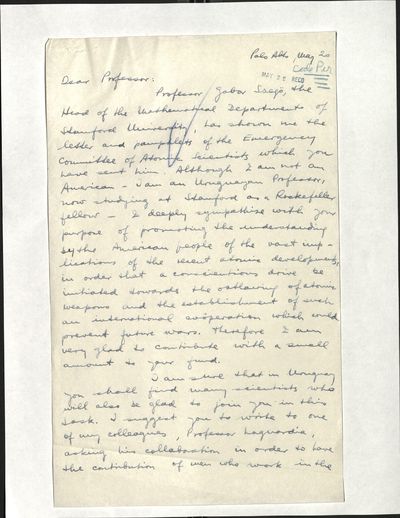 Palo Alto, May 20
MAY 22 RECD
Dear Professor:
Professor Gabor Szegö, the
Head of the Mathematical Departments of
Stanford University, has shown me the
letter and pamphlets of the Emergency
Committee of Atomic Scientists which you
have sent him. Although I am not an
American - I am an Uruguayan Professor,
now studying at Stanford as a Rockefeller
fellow - I deeply sympathise with your
purpose of promoting the understanding
by the American people of the vast imp-
lications of the recent atomic developments,
in order that a conscientious drive be
initiated towards the outlawing of atomic
weapons and the establishment of such
an international coöperation which would
prevent future wars. Therefore I am
very glad to contribute with a small
amount to your fund.
I am sure that in Uruguay
you shall find many scientists who
will also be glad to join you in this
task. I suggest you to write to one
of my colleagues, Professor Laguardia,
asking his collaboration in order to have
the contribution of men who work in the